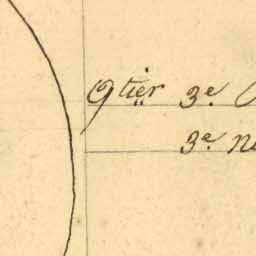 Qtier 3e
3e